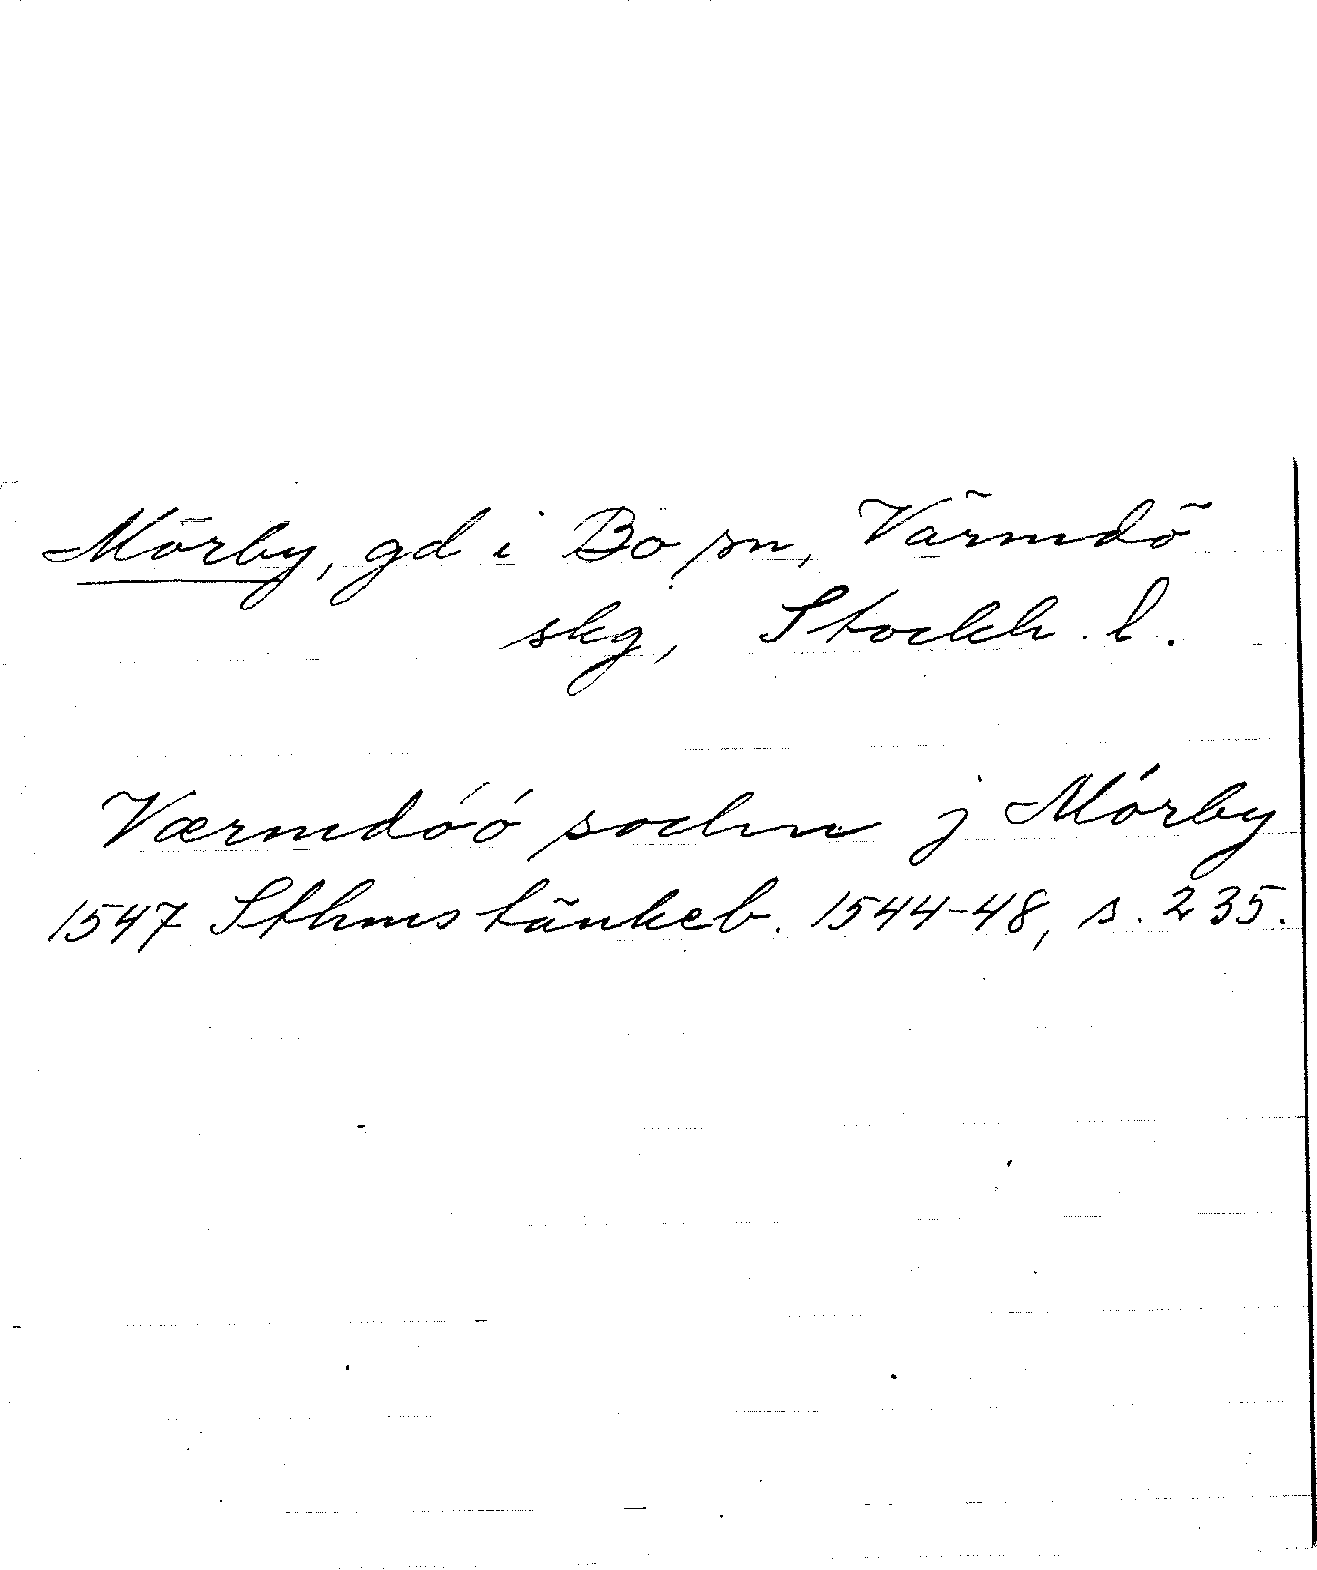 Mörby, gd i Boo sn, Värmdö
skg, Stockh. l.
Værmdóó sochn j Mórby
1547 Sthms tänkeb. 1544-48, s. 235.